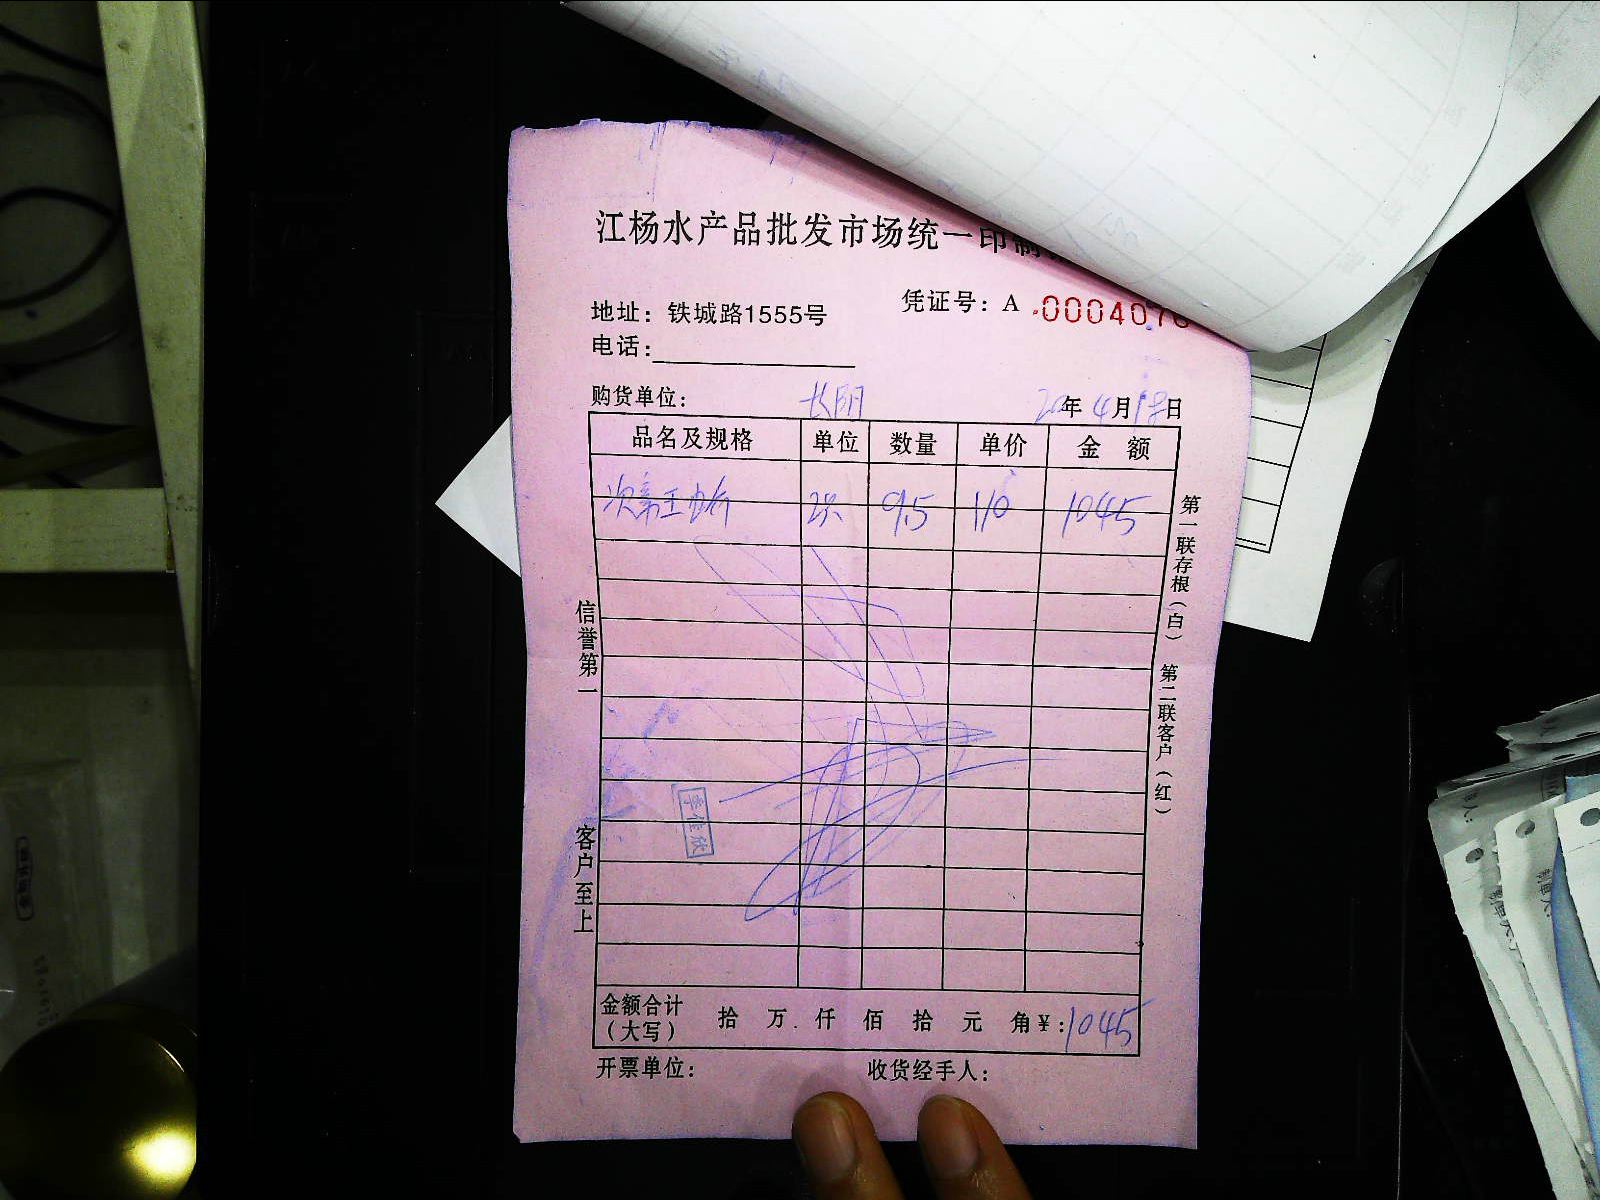 江杨水产品批发市场统一印制
凭证号：A .0004070
地址：铁城路1555号
电话：
购货单位： 长阴 20年4月18日
品名及规格 单位 数量 单价 金 额
9.5 110 1045
第一联存根（白） 第二联客户（红）
信誉第一 客户至上
李佳欣
金额合计（大写） 拾 万 仟 佰 拾 元 角 ¥：1045
开票单位： 收货经手人：